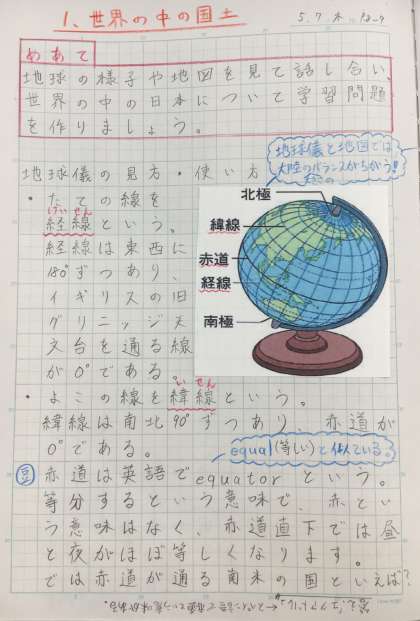 1、世界の中の国土
5.7.木 P8〜9
めあて
地球の様子や地図を見て話し合い、
世界の中の日本について学習問題
を作りましょう。
地球儀と地図では
大陸のバランスがちがう!!
地球儀の見方・使い方
・たての線を
けいせん
経線という。
経線は東西に
180°ずつあり、
イギリスの旧
グリニッジ天
文台を通る線
が0°である。
北極
緯線
赤道
経線
南極
いせん
・よこの線を緯線という。
緯線は南北90°ずつあり、赤道が
0°である。
equal(等しい)と似ている。
豆 赤道は英語でequatorという。
等分するという意味で、赤とい
う意味はなく、赤道直下では昼
と夜がほぼ等しくなります。
では赤道が通る南米の国といえば?